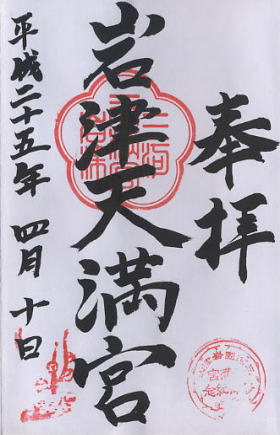 奉拝
岩津天満宮
平成二十五年 四月 十日